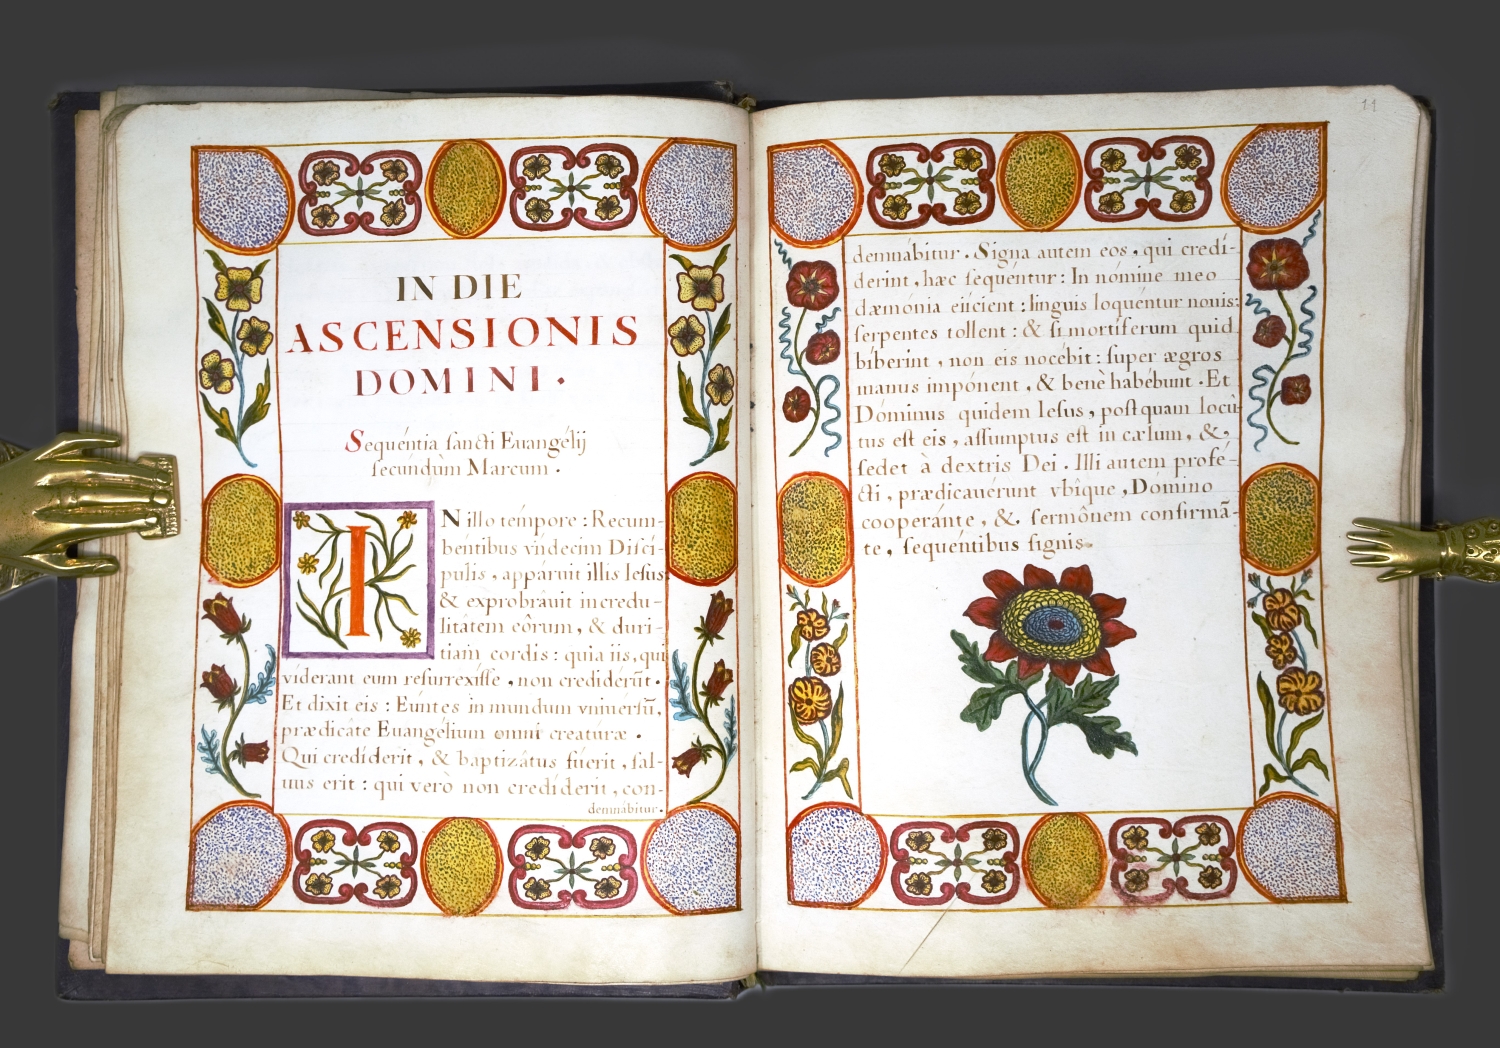 IN DIE
ASCENSIONIS
DOMINI.
Sequéntia sancti Euangélij
secundùm Marcum.
IN illo témpore : Recum-
béntibus vńdecim Disci-
pulis, appáruit illis Iesus:
& exprobrâuit incredu-
litâtem eôrum, & duri-
tiam cordis : quia iis, qui
víderant eum resurrexísse, non credidérūt.
Et dixit eis : Eúntes in mundum vniuérsū,
prædicâte Euangélium omni creatúræ.
Qui credíderit, & baptizâtus fúerit, sal-
uus erit : qui verò non credíderit, con-
demnábitur.
11
demnábitur. Signa autem eos, qui credí-
derint, hæc sequéntur : In nómine meo
dæmónia eiícient : linguis loquéntur nouis:
serpentes tollent : & si mortíferum quid
bíberint, non eis nocébit : super ægros
manus impónent, & benè habébunt. Et
Dóminus quidem Iesus, postquam locû-
tus est eis, assumptus est in cælum, &,
sedet à dextris Dei. Illi autem profé-
cti, prædicauérunt vbîque, Dómino
cooperánte, &. sermônem confirmā-
te, sequéntibus signis.